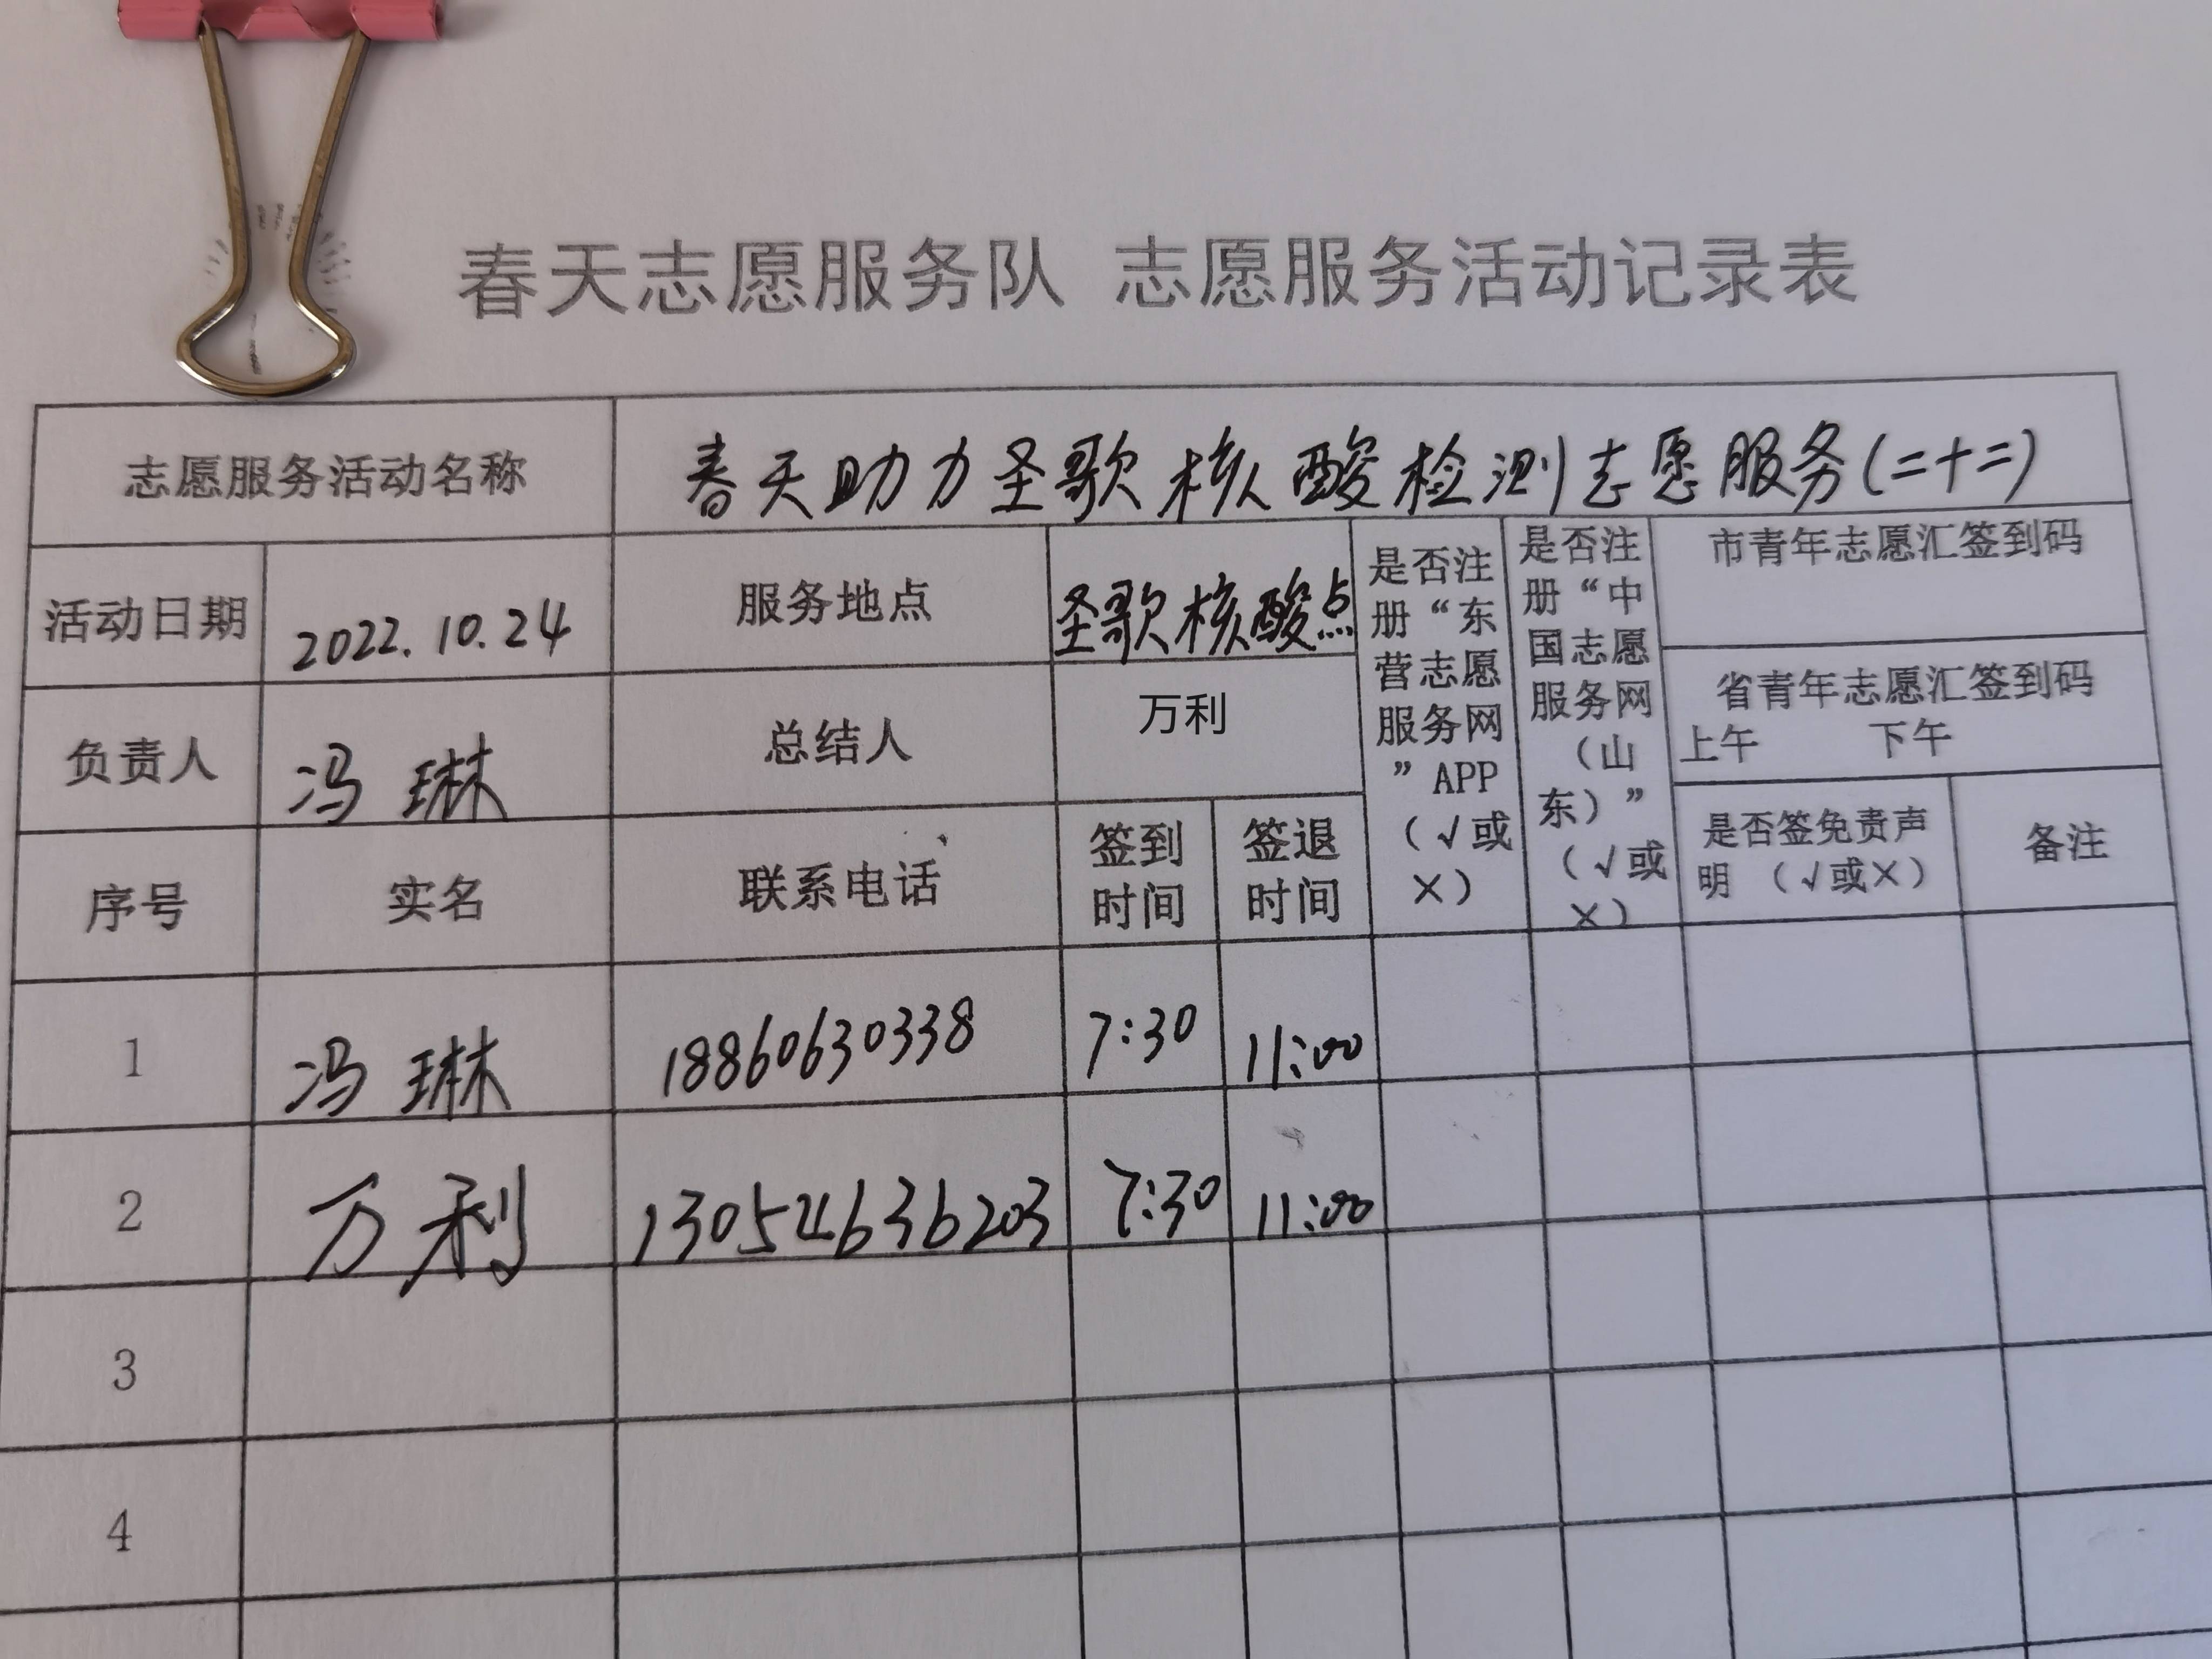 春天志愿服务队 志愿服务活动记录表
志愿服务活动名称 春天助力圣歌核酸检测志愿服务(二十二)
活动日期 2022.10.24 服务地点 圣歌核酸点
是否注
册“东
营志愿
服务网
”APP
(√或
×)
是否注
册“中
国志愿
服务网
(山
东)”
(√或
×)
市青年志愿汇签到码
负责人 冯琳 总结人 万利
省青年志愿汇签到码
上午 下午
序号 实名 联系电话
签到
时间
签退
时间
是否签免责声
明 (√或×)
备注
1 冯琳 18860630338 7:30 11:00
2 万利 13054636203 7:30 11:00
3
4